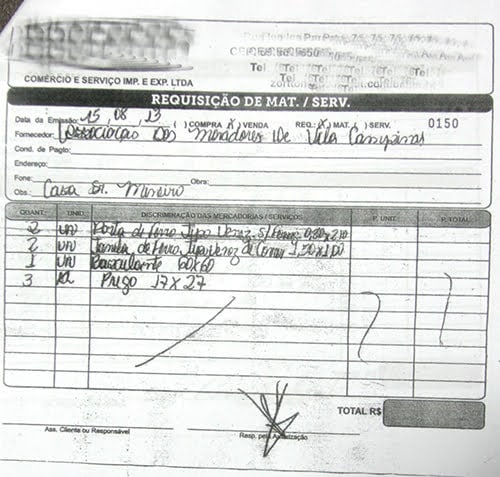 COMÉRCIO E SERVIÇO IMP. E EXP. LTDA
Tel
REQUISIÇÃO DE MAT. / SERV.
Data da Emissão: 15, 08, 13 ( ) COMPRA (X) VENDA REQ.: (X) MAT. ( ) SERV. 0150
Fornecedor: Associação dos Moradores de Vila Campinas
Cond. de Pagto:
Endereço:
Fone: Obra:
Obs.: Casa Sr. Mineiro
QUANT. UNID. DISCRIMINAÇÃO DAS MERCADORIAS / SERVIÇOS P. UNIT. P. TOTAL
2 UN Porta de Ferro Tipo Venez. s/ 0,80x2,10
2 UN Janela de Ferro Tipo Venez de Correr 1,50x1,00
1 UN Basculante 60x60
3 Prego 17x27
TOTAL R$
Ass. Cliente ou Responsável Resp. pela Autorização